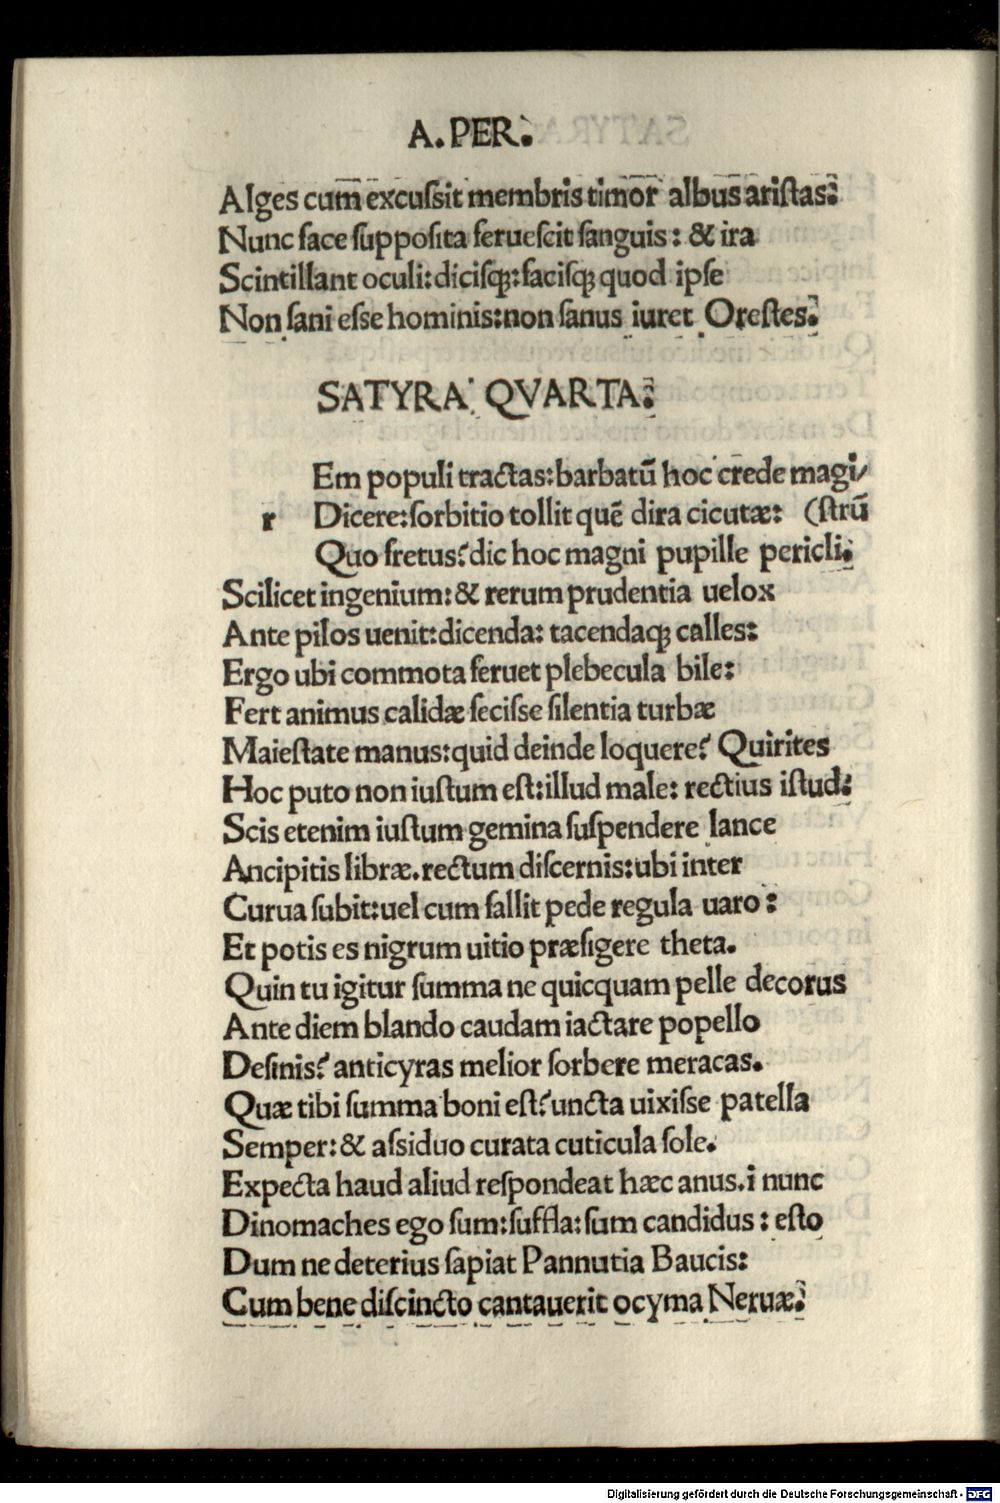 A. PER.
Alges cum excuſsit membris timor albus ariſtas:
Nunc face ſuppoſita feruefcit ſanguis: & ira
Scintillant oculi: diciſq;: faciſq; quod ipſe
Non ſani eſse hominis: non ſanus iuret Oreſtes.
SATYRA QVARTA.
Em populi tractas: barbatū hoc crede magi/
r Dicere: ſorbitio tollit quē dira cicutæ: (ſtrū
Quo fretus? dic hoc magni pupille pericli.
Scilicet ingenium: & rerum prudentia uelox
Ante pilos uenit: dicenda: tacendaq; calles:
Ergo ubi commota feruet plebecula bile:
Fert animus calidæ feciſse ſilentia turbæ
Maieſtate manus: quid deinde loquere? Quirites
Hoc puto non iuſtum eſt: illud male: rectius iſtud:
Scis etenim iuſtum gemina ſuſpendere lance
Ancipitis libræ. rectum diſcernis: ubi inter
Curua ſubit: uel cum fallit pede regula uaro:
Et potis es nigrum uitio præfigere theta.
Quin tu igitur ſumma ne quicquam pelle decorus
Ante diem blando caudam iactare popello
Deſinis? anticyras melior ſorbere meracas.
Quæ tibi ſumma boni eſt? uncta uixiſse patella
Semper: & aſsiduo curata cuticula ſole.
Expecta haud aliud reſpondeat hæc anus. i nunc
Dinomaches ego ſum: ſuffla: ſum candidus: eſto
Dum ne deterius ſapiat Pannutia Baucis:
Cum bene diſcincto cantauerit ocyma Neruæ.
Digitalisierung gefördert durch die Deutsche Forschungsgemeinschaft - DFG